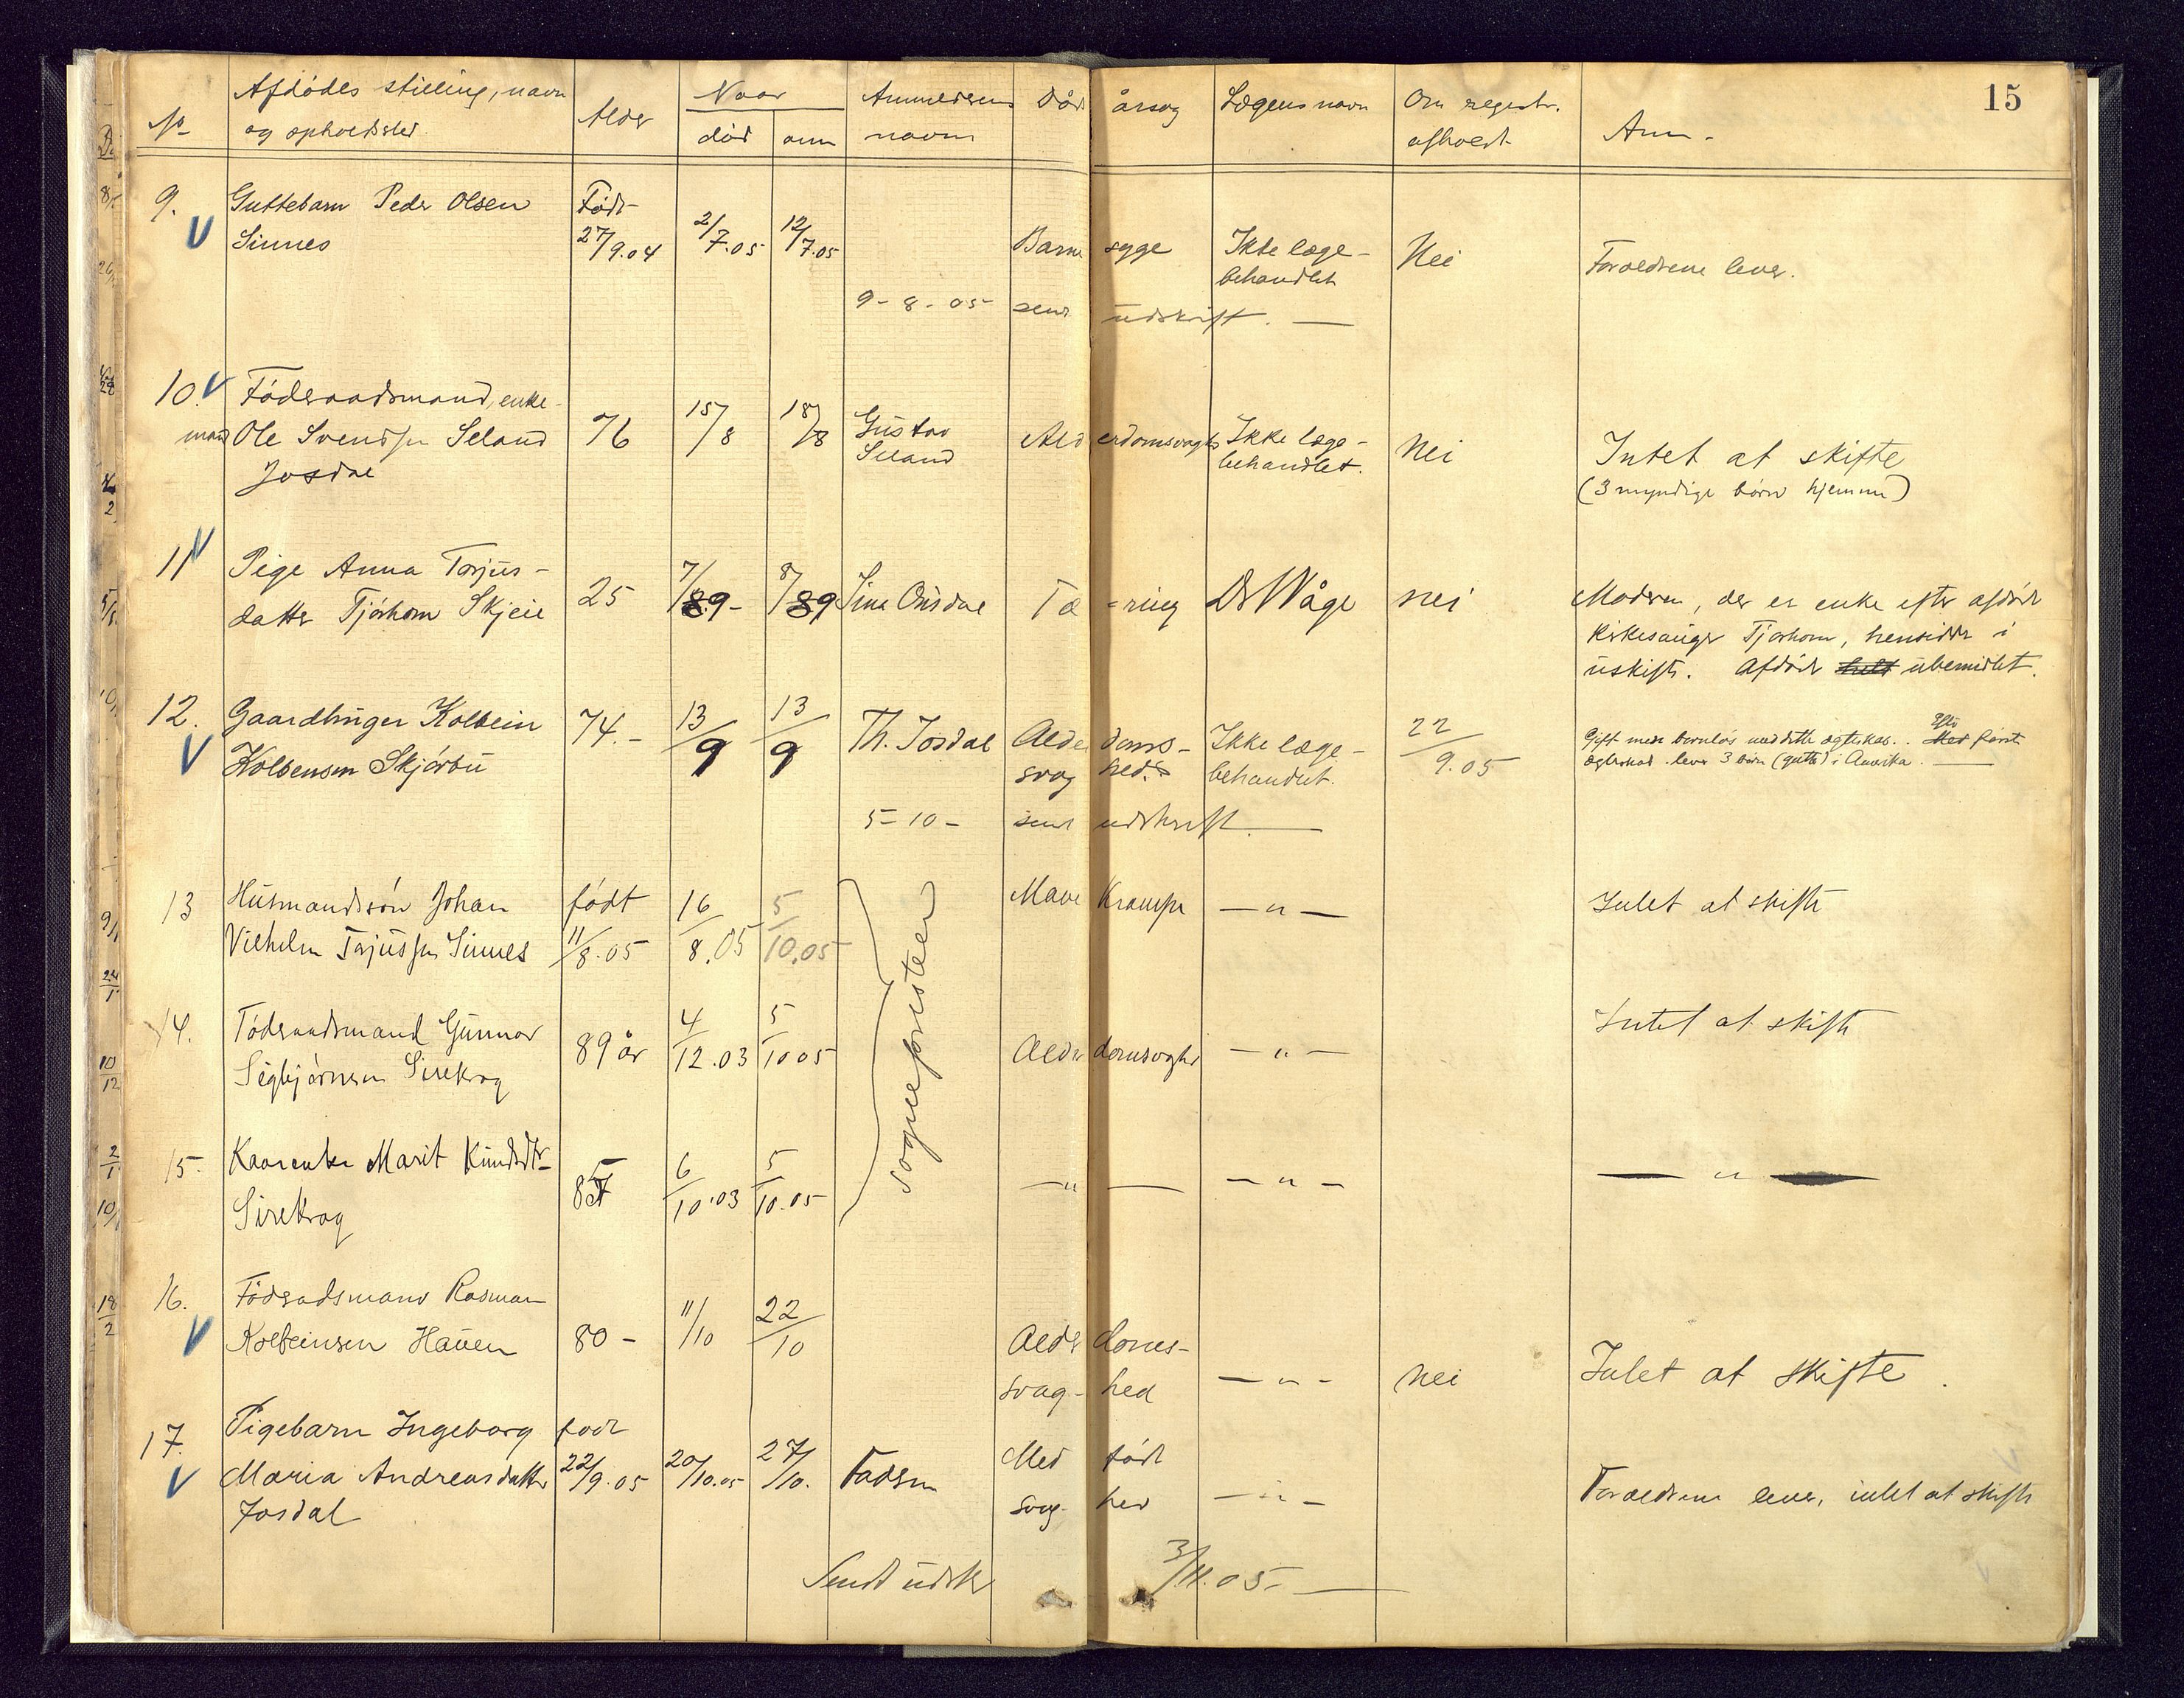 15
No Afdødes stilling, navn og opholdssted Alder Naar død anm Anmelderens navn Dødsårsag Lægens navn Om registr. afholdt Anm.
9. Guttebarn Peder Olsen Født
Sinnes 27/9.04 2/7.05 12/7.05 Barnesyge Ikke læge- Nei Forældrene lever.
behandlet
9-8-05 send udskrift. —
10. Føderaadsmand, enke-
mand Ole Svendsen Seland 76 15/8 18/8 Gustav Alderdomsvagh Ikke læge- Nei Intet at skifte
Josdal Seland behandlet. (3 myndige børn hjemme)
11 Pige Anna Torjus-
datter Tjørhom Skjeie 25 7/9- 8/9 Sine Ousdal Tæ=ring Dr Wåge nei Moderen, der er enke efter afdøde
kirkesanger Tjørhom, hensidder i
uskifte. Afdøde helt ubemidlet.
12. Gaardbruger Kolbein 74.- 13/9 13/9 Th. Josdal Alderdoms- Ikke læge- 22/9.05 Gift men barnløs med dette ægteskab. Med Efter første
Kolbensen Skjørbu svaghed. behandlet. ægteskab lever 3 børn (gutter) i Amerika. —
5-10- sent udskrift. —
13 Husmandssøn Johan født 16/8.05 5/10.05 Mave Krampe — " — Intet at skifte
Vilhelm Torjussen Sinnes 11/8.05
sogneforsteer
14. Føderaadsmand Gunnar 89 år 4/12.03 5/10 05 Alderdomsvaghed — " — Intet at skifte
Sigbjørnsen Sirekrog
15. Kaarenke Marit Knudsdtr- 85 6/10.03 5/10.05 — " — — " — — " —
Sirekrog
16. Føderadsmand Rasman
Kolbeinsen Hauen 80 - 11/10 22/10 Alderdoms-
svag-hed — " — Nei Intet at skifte.
17. Pigebarn Ingeborg født
Maria Andreasdatter 22/9.05 20/10.05 27/10. Faderen Medfødt
Josdal svaghed — " — Forældrene lever, intet at skifte
Sendt udskr 3/11.05. —